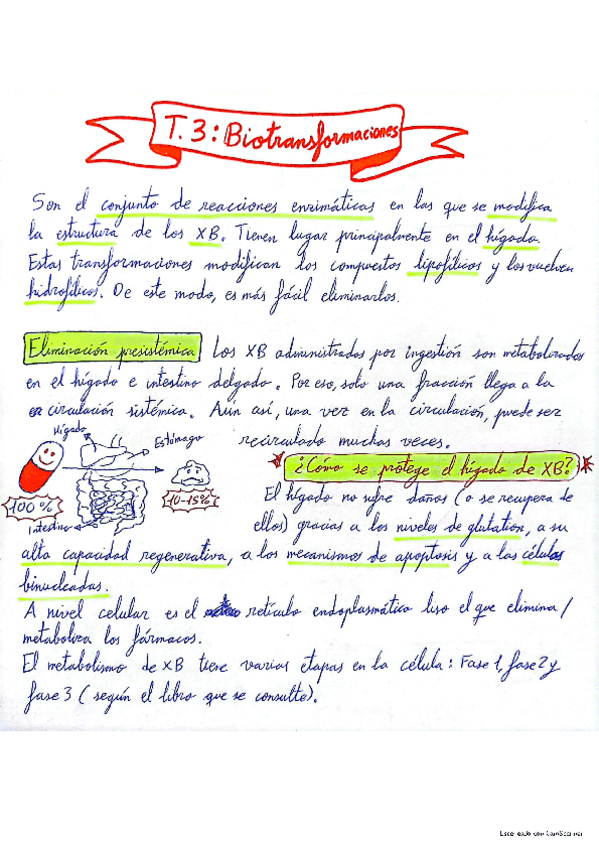 T. 3: Biotransformaciones
Son el conjunto de reacciones enzimáticas en las que se modifica
la estructura de los XB. Tienen lugar principalmente en el hígado.
Estas transformaciones modifican los compuestos lipofílicos y los vuelven
hidrofílicos. De este modo, es más fácil eliminarlos.
Eliminación presistémica Los XB administrados por ingestión son metabolizados
en el hígado e intestino delgado. Por eso, solo una fracción llega a la
circulación sistémica. Aún así, una vez en la circulación, puede ser
recirculado muchas veces.
Hígado
Estómago
100%
10-15%
Intestino
¿Cómo se protege el hígado de XB?
El hígado no sufre daños (o se recupera de
ellos) gracias a los niveles de glutation, a su
alta capacidad regenerativa, a los mecanismos de apoptosis y a las células
binucleadas.
A nivel celular es el retículo endoplasmático liso el que elimina/
metaboliza los fármacos.
El metabolismo de XB tiene varias etapas en la célula: Fase 1, fase 2 y
fase 3 (según el libro que se consulte).
Escaneado con CamScanner